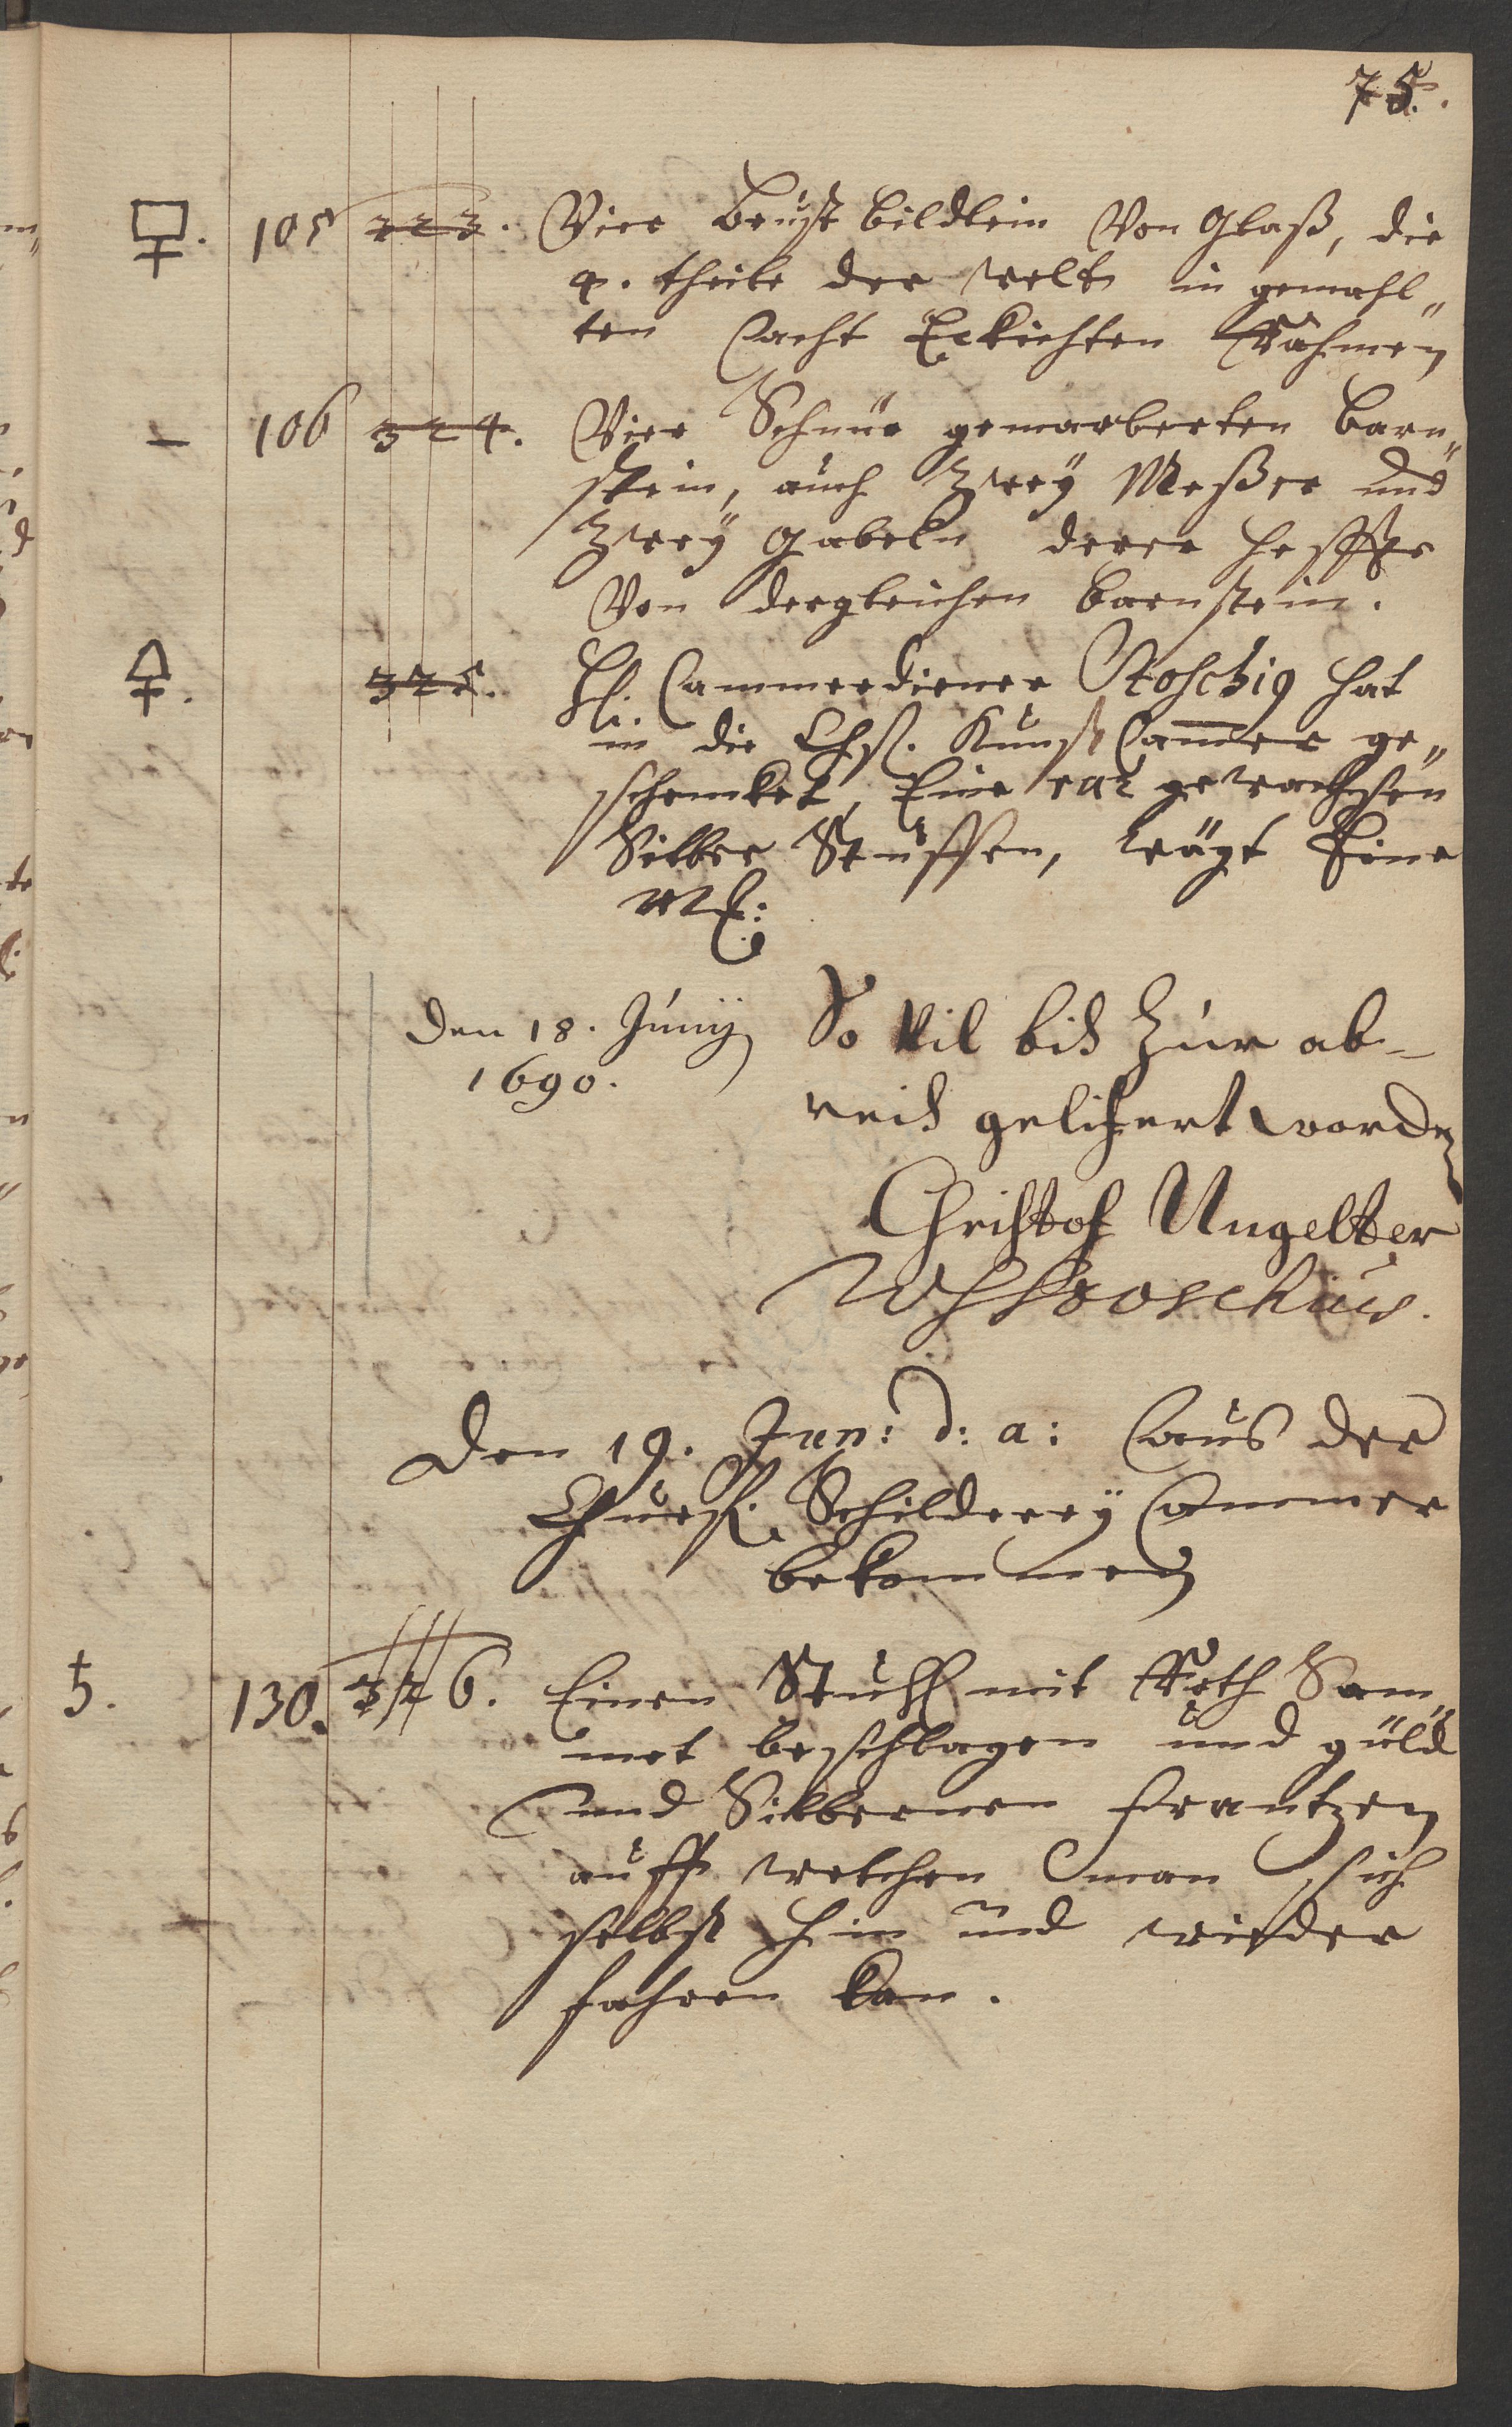 75.
105 323. Vier Brust bildlein Von Glaß, die
4. theile der welt in gemahl„
ten acht Eckichten Rähmen
— 106 324. Vier Schnür gemarberten barn„
stein, auch Zweÿ Meßer und
Zweÿ gabeln derer Heffte
Von dergleichen barnstein.
325. H. Cammerdiener Stoschig hat
in die Chfl. Kunst Cammer ge„
schencket, Eine rar gewachsen
Silber Stuffen, wägt Eine
M:
Den 18. Junij So vil bis Zur ab-
1690. reis gelifert worden
Christof Ungelter
Den 19. Jun: d: a: aus der
Churfl. Schildereÿ Cammer
bekommen
5. 130. 326. Einen Stuhl mit Roth Sam„
met beschlagen und güld
und Silbernen frantzen
auff welchen man sich
selbst hin und wieder
fahren kan.